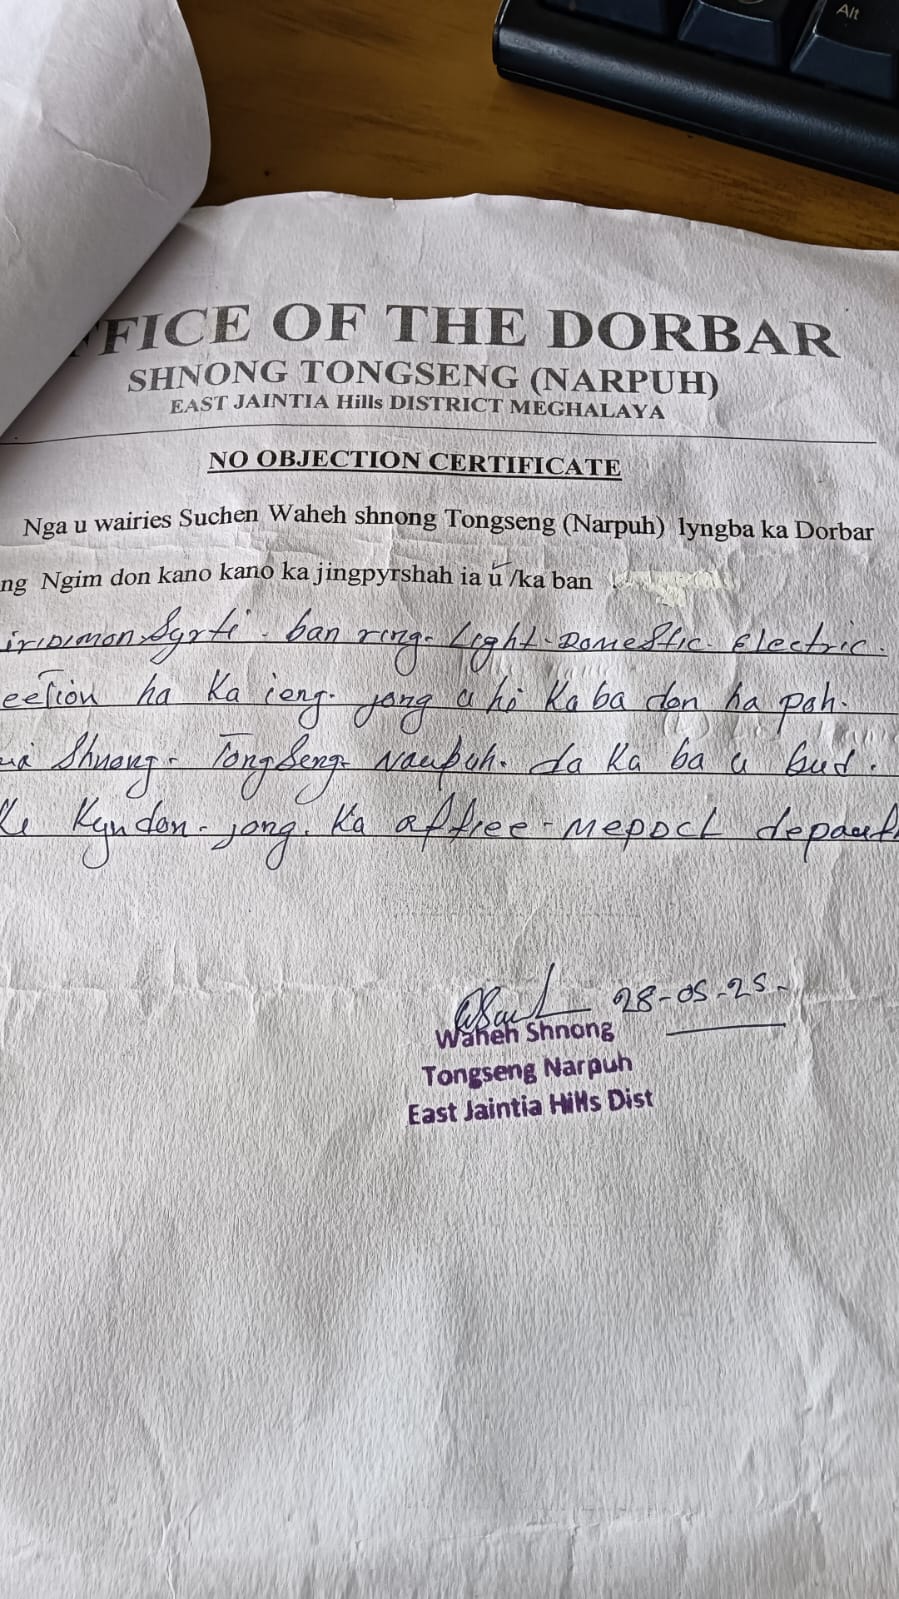 Alt
FFICE OF THE DORBAR
SHNONG TONGSENG (NARPUH)
EAST JAINTIA Hills DISTRICT MEGHALAYA
NO OBJECTION CERTIFICATE
Nga u wairies Suchen Waheh shnong Tongseng (Narpuh) lyngba ka Dorbar
ng Ngim don kano kano ka jingpyrshah ia u /ka ban
Syrti - ban ring. Light-Domestic. Electric.
ha Ka ieng. jong u hi Ka ba don ha pah.
Shnong- TongSeng- da Ka ba u bud.
Ki Kyndon- jong. Ka
28-05-25-
Waheh Shnong
Tongseng Narpuh
East Jaintia Hills Dist